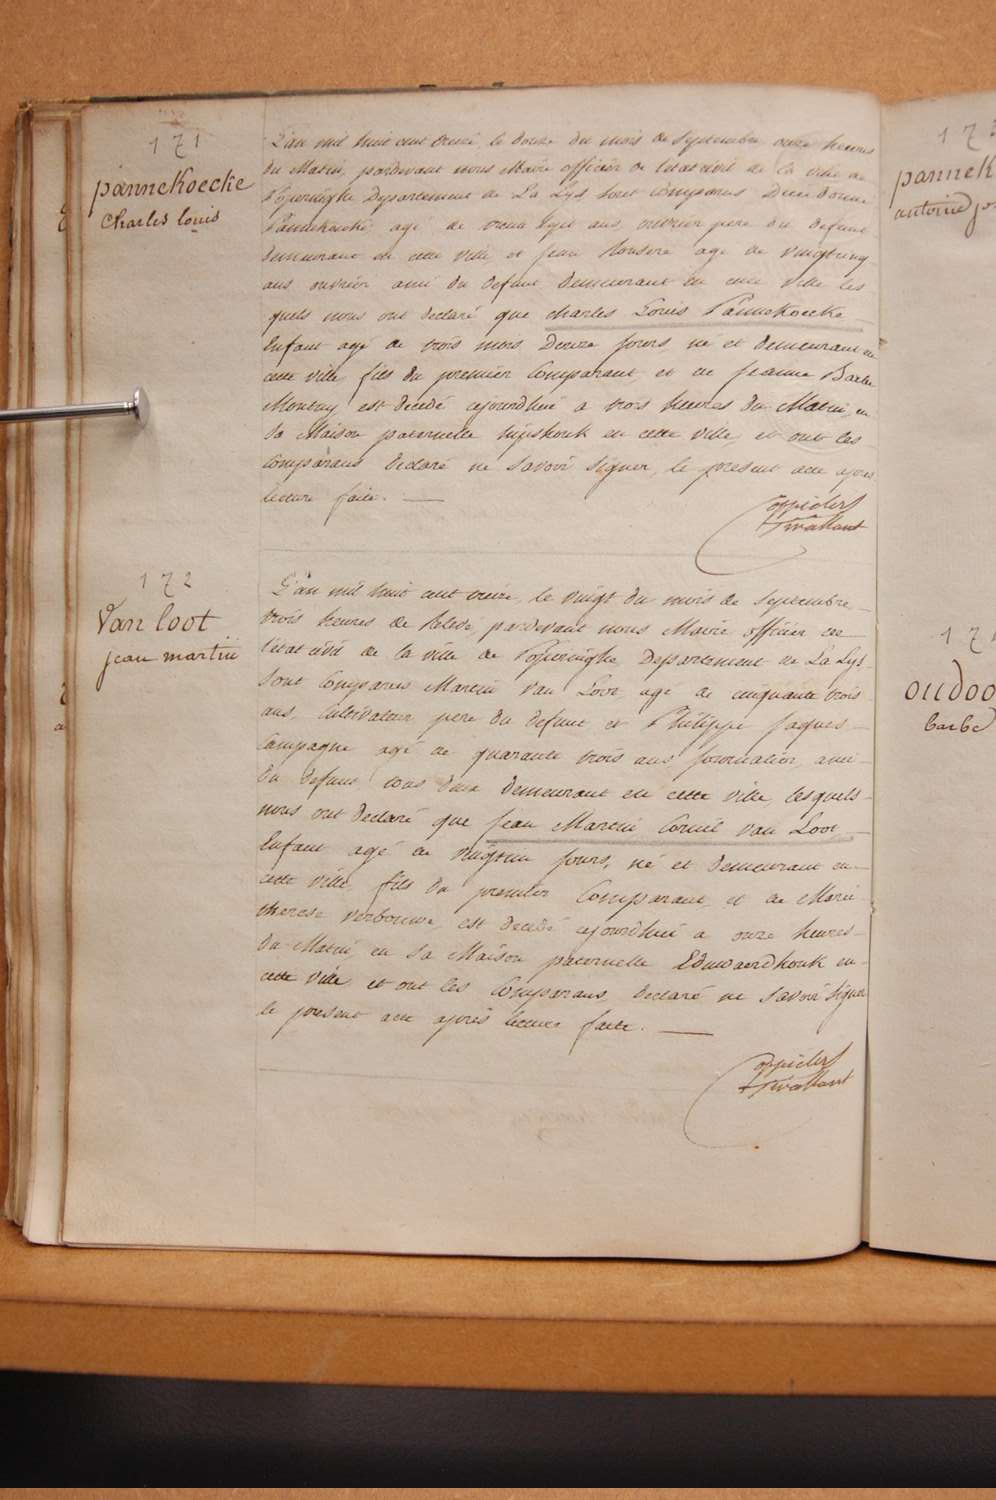 171
pannekoecke
Charles louis
L'an mil huit cent treize, le douze du mois de Septembre onze heures
du Matin, pardevant nous Maire officier de l'etat civil de la ville de
Poperinghe Departement de La Lys sont Comparus Dieu donné
Pannekoecke agé de trente ans, ouvrier pere du defunt
demeurant en cette ville et jean agé de vingtcinq
ans ouvrier ami du defunt demeurant en cette ville les
quels nous ont declaré que charles Louis Pannekoecke
Enfant agé de trois mois Douze jours, né et demeurant en
cette ville, fils du premier Comparant, et de jeanne Barbe
est decedé ajourdhui a trois heures du Matin, en
sa Maison paternelle en cette ville, et ont les
Comparans declaré ne savoir signer, le present acte apres
lecture faite.
172
Van loot
jean martin
L'an mil huit cent treize, le vingt du mois de Septembre
trois heures de relevé, pardevant nous Maire officier de
l'etat civil de la ville de Poperinghe Departement de La Lys
sont Comparus Martin Van Loot agé de cinquante trois
ans, Cultivateur pere du defunt et Philippe jaques
Campagne agé de quarante trois ans journalier, ami
du defunt, tous deux demeurant en cette ville, lesquels
nous ont declaré que jean Martin Corneil Van Loot
Enfant agé de vingtun jours, né et demeurant en
cette ville, fils du premier Comparant, et de Marie
therese est decedé ajourdhui a onze heures
du Matin, en sa Maison paternelle Edewaerdhouk en
cette ville et ont les Comparans declaré ne savoir signer
le present acte après lecture faite.
pannek
antoine
oudoo
barbe